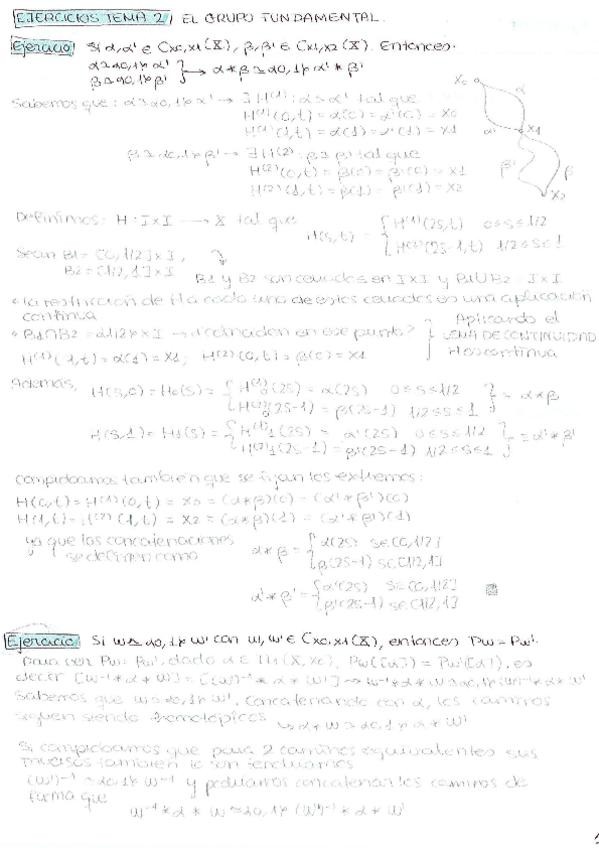 EJERCICIOS TEMA 2, EL GRUPO FUNDAMENTAL.
Ejercicio Si α, α' ∈ Cx0,x1(X), β, β' ∈ Cx1,x2(X). Entonces.
α ≃{0,1} α'
β ≃{0,1} β' } → α * β ≃{0,1} α' * β'
Sabemos que: α ≃{0,1} α' → ∃ H⁽¹⁾: α ≃ α' tal que
H⁽¹⁾(0,t) = α(0) = α'(0) = x0
H⁽¹⁾(1,t) = α(1) = α'(1) = x1
β ≃{0,1} β' → ∃ H⁽²⁾: β ≃ β' tal que
H⁽²⁾(0,t) = β(0) = β'(0) = x1
H⁽²⁾(1,t) = β(1) = β'(1) = x2
x0 α α' x1 β' β x2
Definimos: H: I×I → X tal que
H(s,t) = { H⁽¹⁾(2s,t) 0≤s≤1/2
H⁽²⁾(2s-1,t) 1/2≤s≤1
Sean B1 = [0,1/2]×I,
B2 = [1/2,1]×I
B1 y B2 son cerrados en I×I y B1∪B2 = I×I
• la restricción de H a cada uno de estos cerrados es una aplicación
continua
• B1∩B2 = {1/2}×I → ¿coinciden en ese punto?
H⁽¹⁾(1,t) = α(1) = x1; H⁽²⁾(0,t) = β(0) = x1
Aplicando el
LEMA DE CONTINUIDAD
H es continua
Además, H(s,0) = H0(s) = { H⁽¹⁾0(2s) = α(2s) 0≤s≤1/2
H⁽²⁾0(2s-1) = β(2s-1) 1/2≤s≤1 } = α * β
H(s,1) = H1(s) = { H⁽¹⁾1(2s) = α'(2s) 0≤s≤1/2
H⁽²⁾1(2s-1) = β'(2s-1) 1/2≤s≤1 } = α' * β'
Comprobamos también que se fijan los extremos:
H(0,t) = H⁽¹⁾(0,t) = x0 = (α*β)(0) = (α'*β')(0)
H(1,t) = H⁽²⁾(1,t) = x2 = (α*β)(1) = (α'*β')(1)
ya que las concatenaciones
se definen como
α * β = { α(2s) s∈[0,1/2]
β(2s-1) s∈[1/2,1]
α' * β' = { α'(2s) s∈[0,1/2]
β'(2s-1) s∈[1/2,1]
Ejercicio Si w ≃{0,1} w' con w, w' ∈ Cx0,x1(X), entonces Pw = Pw'.
Para ver Pw = Pw', dado α ∈ Π1(X,x0), Pw([α]) = Pw'([α]), es
decir [w⁻¹*α*w] = [(w')⁻¹*α*w'] → w⁻¹*α*w ≃{0,1} (w')⁻¹*α*w'
Sabemos que w ≃{0,1} w'. Concatenando con α, los caminos
siguen siendo homotópicos → α*w ≃{0,1} α*w'
Si comprobamos que para 2 caminos equivalentes sus
inversos también lo son tendríamos
(w')⁻¹ ≃{0,1} w⁻¹ y podríamos concatenar los caminos de
forma que
w⁻¹ * α * w ≃{0,1} (w')⁻¹ * α * w'